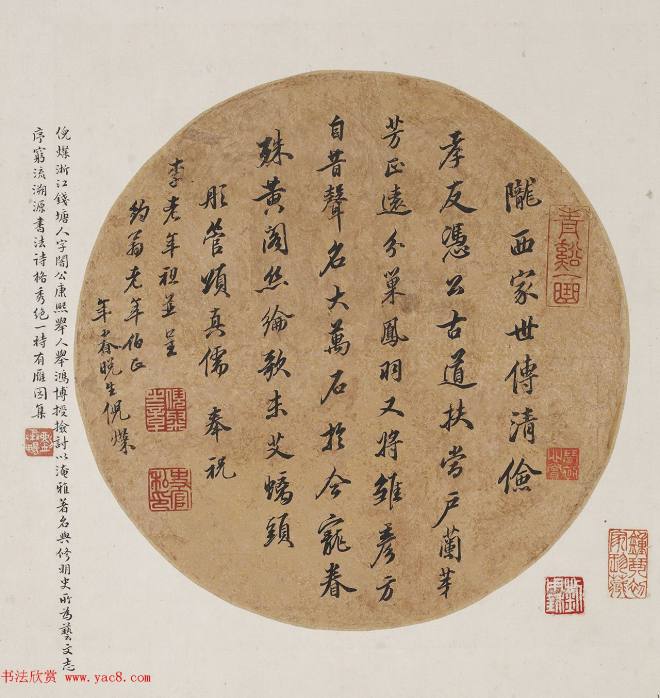 青谿一曲
隴西家世傳清儉
孝友憑公古道扶當戶蘭芽
芳正遠分巢鳳羽又將雛彥方
自昔聲名大萬石於今寵眷
殊黃閣絲綸歌未艾螭頭
彤管頌真儒 奉祝
李老年祖並呈
約翁老年伯正
年眷晚生倪燦
倪燦浙江錢塘人字闇公康熙舉人舉鴻博授檢討以淹雅著名與修明史所為藝文志
序窮流溯源書法詩格秀絕一時有雁園集
书法欣赏 www.yac8.com